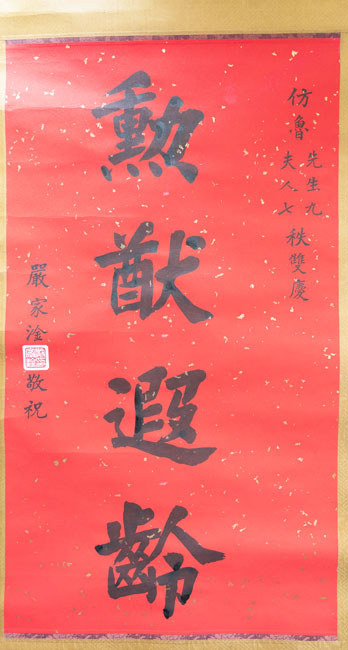 仿魯先生九
夫人七秩雙慶
勲猷遐齡
嚴家淦敬祝